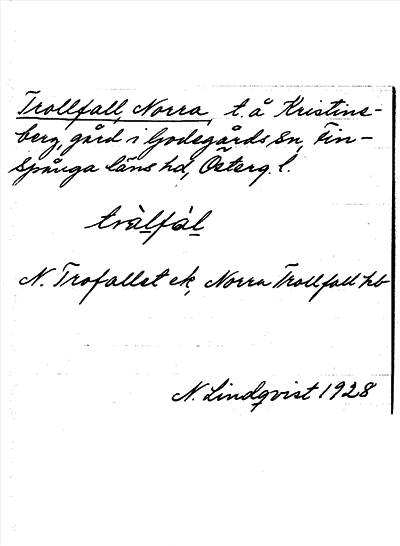 Trollfall, Norra, t. å Kristins-
berg, gård i Godegårds sn, Fin-
spånga läns hd, Österg. l.
tràlfàl
N. Trofallet ek, Norra Trollfall hb
N. Lindqvist 1928